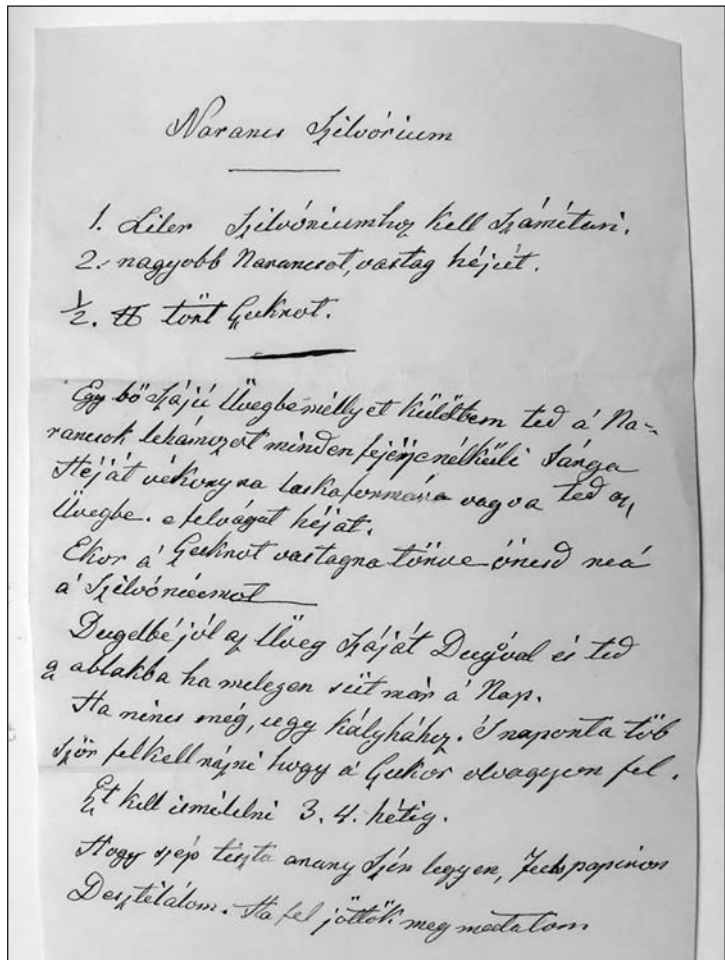 Narancs Szilvórium
1. Liter Szilvóriumhoz kell Számítani.
2. nagyobb Narancsot, vastag héjút.
1/2. ℔ tört Czukrot.
Egy bő Szájú Üvegbe méllyet küldtem ted á Na-
rancsok lehámozot minden fejérje nélküli Sárga
Héját vékonyra laskaformára vagva ted az
Üvegbe. e felvágat héját.
Ekor á Czukrot vastagra törve öncsd reá
á Szilvóriumot
Dugdbé jól az Üveg Száját Dugóval és ted
a ablakba ha melegen süt már á Nap.
Ha nincs még, ugy kályhához. S naponta töb
ször fel kell rázni hogy á Czukor olvagyon fel.
Ezt kell ismételni 3. 4. hétig.
Hogy szép tiszta arany Szin legyen, papiron
Desztilálom. Ha fel jöttök meg mutatom